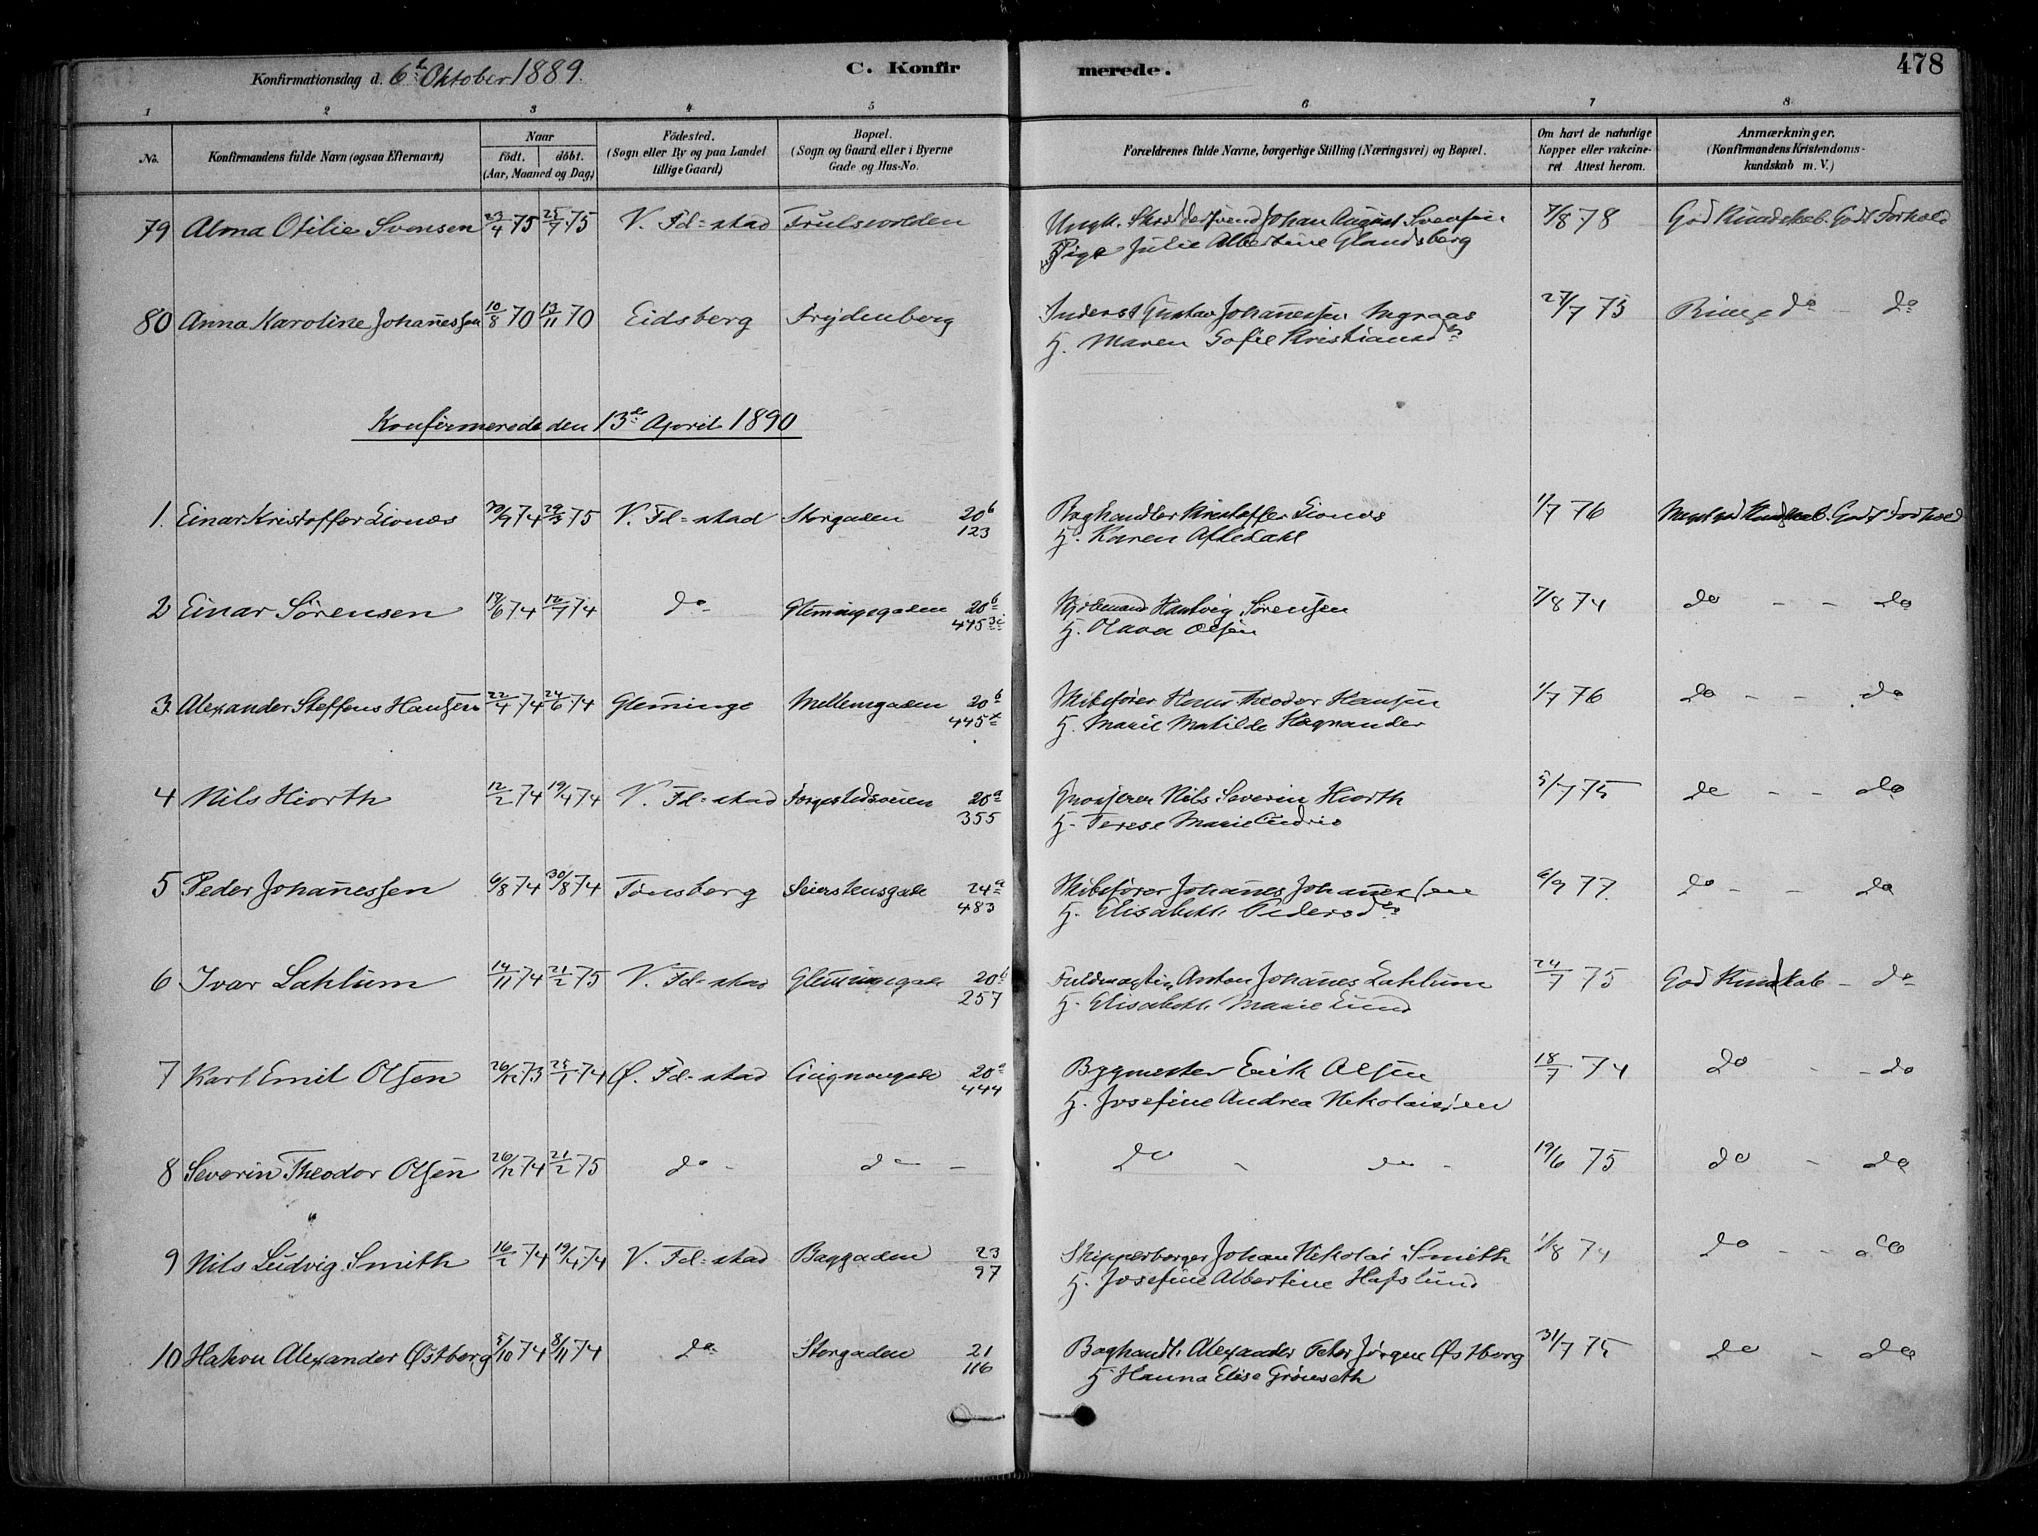 Konfirmationsdag d. 6te Oktober 1889.
C. Konfirmerede.
478
1 2 3 4 5 6 7 8
No. Konfirmandens fulde Navn (ogsaa Efternavn)
Naar født. døbt. (Aar, Maaned og Dag)
Födested. (Sogn eller By og paa Landet tillige Gaard)
Bopæl. (Sogn og Gaard eller i Byerne Gade og Hus-No.
Forældrenes fulde Navne, borgerlige Stilling (Næringsvei) og Bopæl.
Om havt de naturlige Kopper eller vakcineret Attest herom.
Anmærkninger. (Konfirmandens Kristendomskundskab m. V.)
79 Alma Otilie Svensen 23/4 75 25/7 75 V. Fd=stad Trulsvolden Ungk. Skræddersvend Johan August Svensen 7/8 78 God Kundskab. Godt Forhold
Pige Julie Albertine Glandsberg
80 Anna Karoline Johanesen 10/8 70 13/11 70 Eidsberg Frydenberg Inderst Gustav Johannesen 27/7 75 do - do
H. Maren Sofie Kristiansd
Konfirmerede den 13de April 1890
1. Einar Kristoffer Lionæs 30/9 74 29/3 75 V. Fd=stad Storgaden 20b 123 Boghandler Kristoffer Lionæs 1/7 76 Meget god Kundskab. Godt Forhold
H. Karen Aftedahl
2 Einar Sørensen 19/6 74 12/7 74 do Glemmingegaden 20b 445 Hartvig Sørensen 7/8 74 do - - do
H. Olava Olsen
3. Alexander Steffens Hansen 22/4 74 24/6 74 Glemminge Mellemgaden 20b 445 Skibsfører Hans Theodor Hansen 1/7 76 do - - do
H. Marie Matilde Hagnander
4 Nils Hiorth 12/2 74 19/4 74 V. Fd=stad 20a 355 Grosserer Nils Severin Hiorth 5/7 75 do - - do
H. Terese Marie
5 Peder Johanessen 6/8 74 30/8 74 Tønsberg Seierstensgade 24a 483 Skibsfører Johanes Johanessen 6/9 77. do - - do
H. Elisabeth Pedersd
6 Ivar Lahlum 14/11 74 21/2 75 V. Fd=stad Glemmingegade 20b 257 Fuldmægtig Anton Johanes Lahlum 24/7 75 God Kundskab - do
H. Elisabeth Marie Lund
7 Karl Emil Olsen 26/12 73 25/1 74 Ø. Fd=stad Cicignongade 20a 444 Bygmester Erik Olsen 18/7 74 do - - do
H. Josefine Andrea Nikolaisen
8 Severin Theodor Olsen 26/12 74 21/2 75 do - do - do - do - 19/6 75 do - do
9 Nils Ludvig Smith 16/2 74 19/4 74 V. Fd=stad Baggaden 23 97 Skipperborger Johan Nikolai Smith 1/8 74 do - - do
H. Josefine Albertine Hafslund
10 Hakon Alexander Østberg 5/10 74 8/11 74 do Storgaden 21 116 Boghandl. Alexander Peter Jørgen Østberg 31/7 75 do - do
H Hanna Elise Grønseth